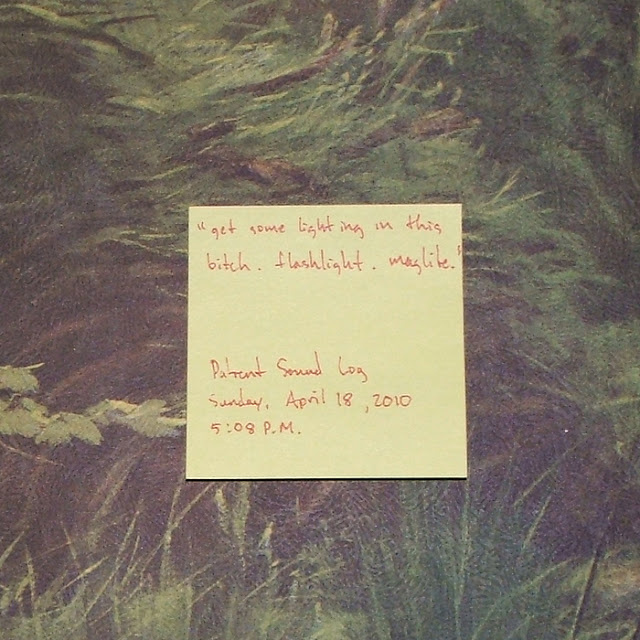 "get some lighting in this
bitch. flashlight. maglite."
Patient Sound Log
Sunday, April 18, 2010
5:08 P.M.